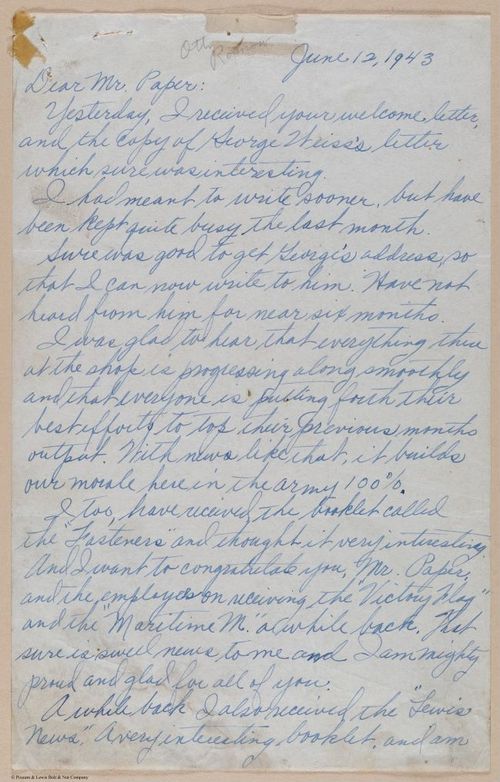 Otto
June 12, 1943
Dear Mr. Paper:
Yesterday, I received your welcome letter,
and the copy of George Weiss's letter
which sure was interesting.
I had meant to write sooner, but have
been kept quite busy the last month.
Sure was good to get Georg's address, so
that I can now write to him. Have not
heard from him for near six months.
I was glad to hear, that everything
at the shop is progressing along smoothly
and that everyone is putting forth their
best efforts to top their previous months
output. With news like that, it builds
our morale here in the army 100%.
I too, have received the booklet called
the "Fasteners" and thought it very interesting.
And I want to congratulate you, Mr. Paper,
and the employees on receiving the "Victory Flag"
and the "Maritime M." a while back. That
sure is swell news to me and I am mighty
proud and glad for all of you.
A while back I also received the "Lewis
News". A very interesting booklet, and am
© Pioneers & Lewis Bolt & Nut Company